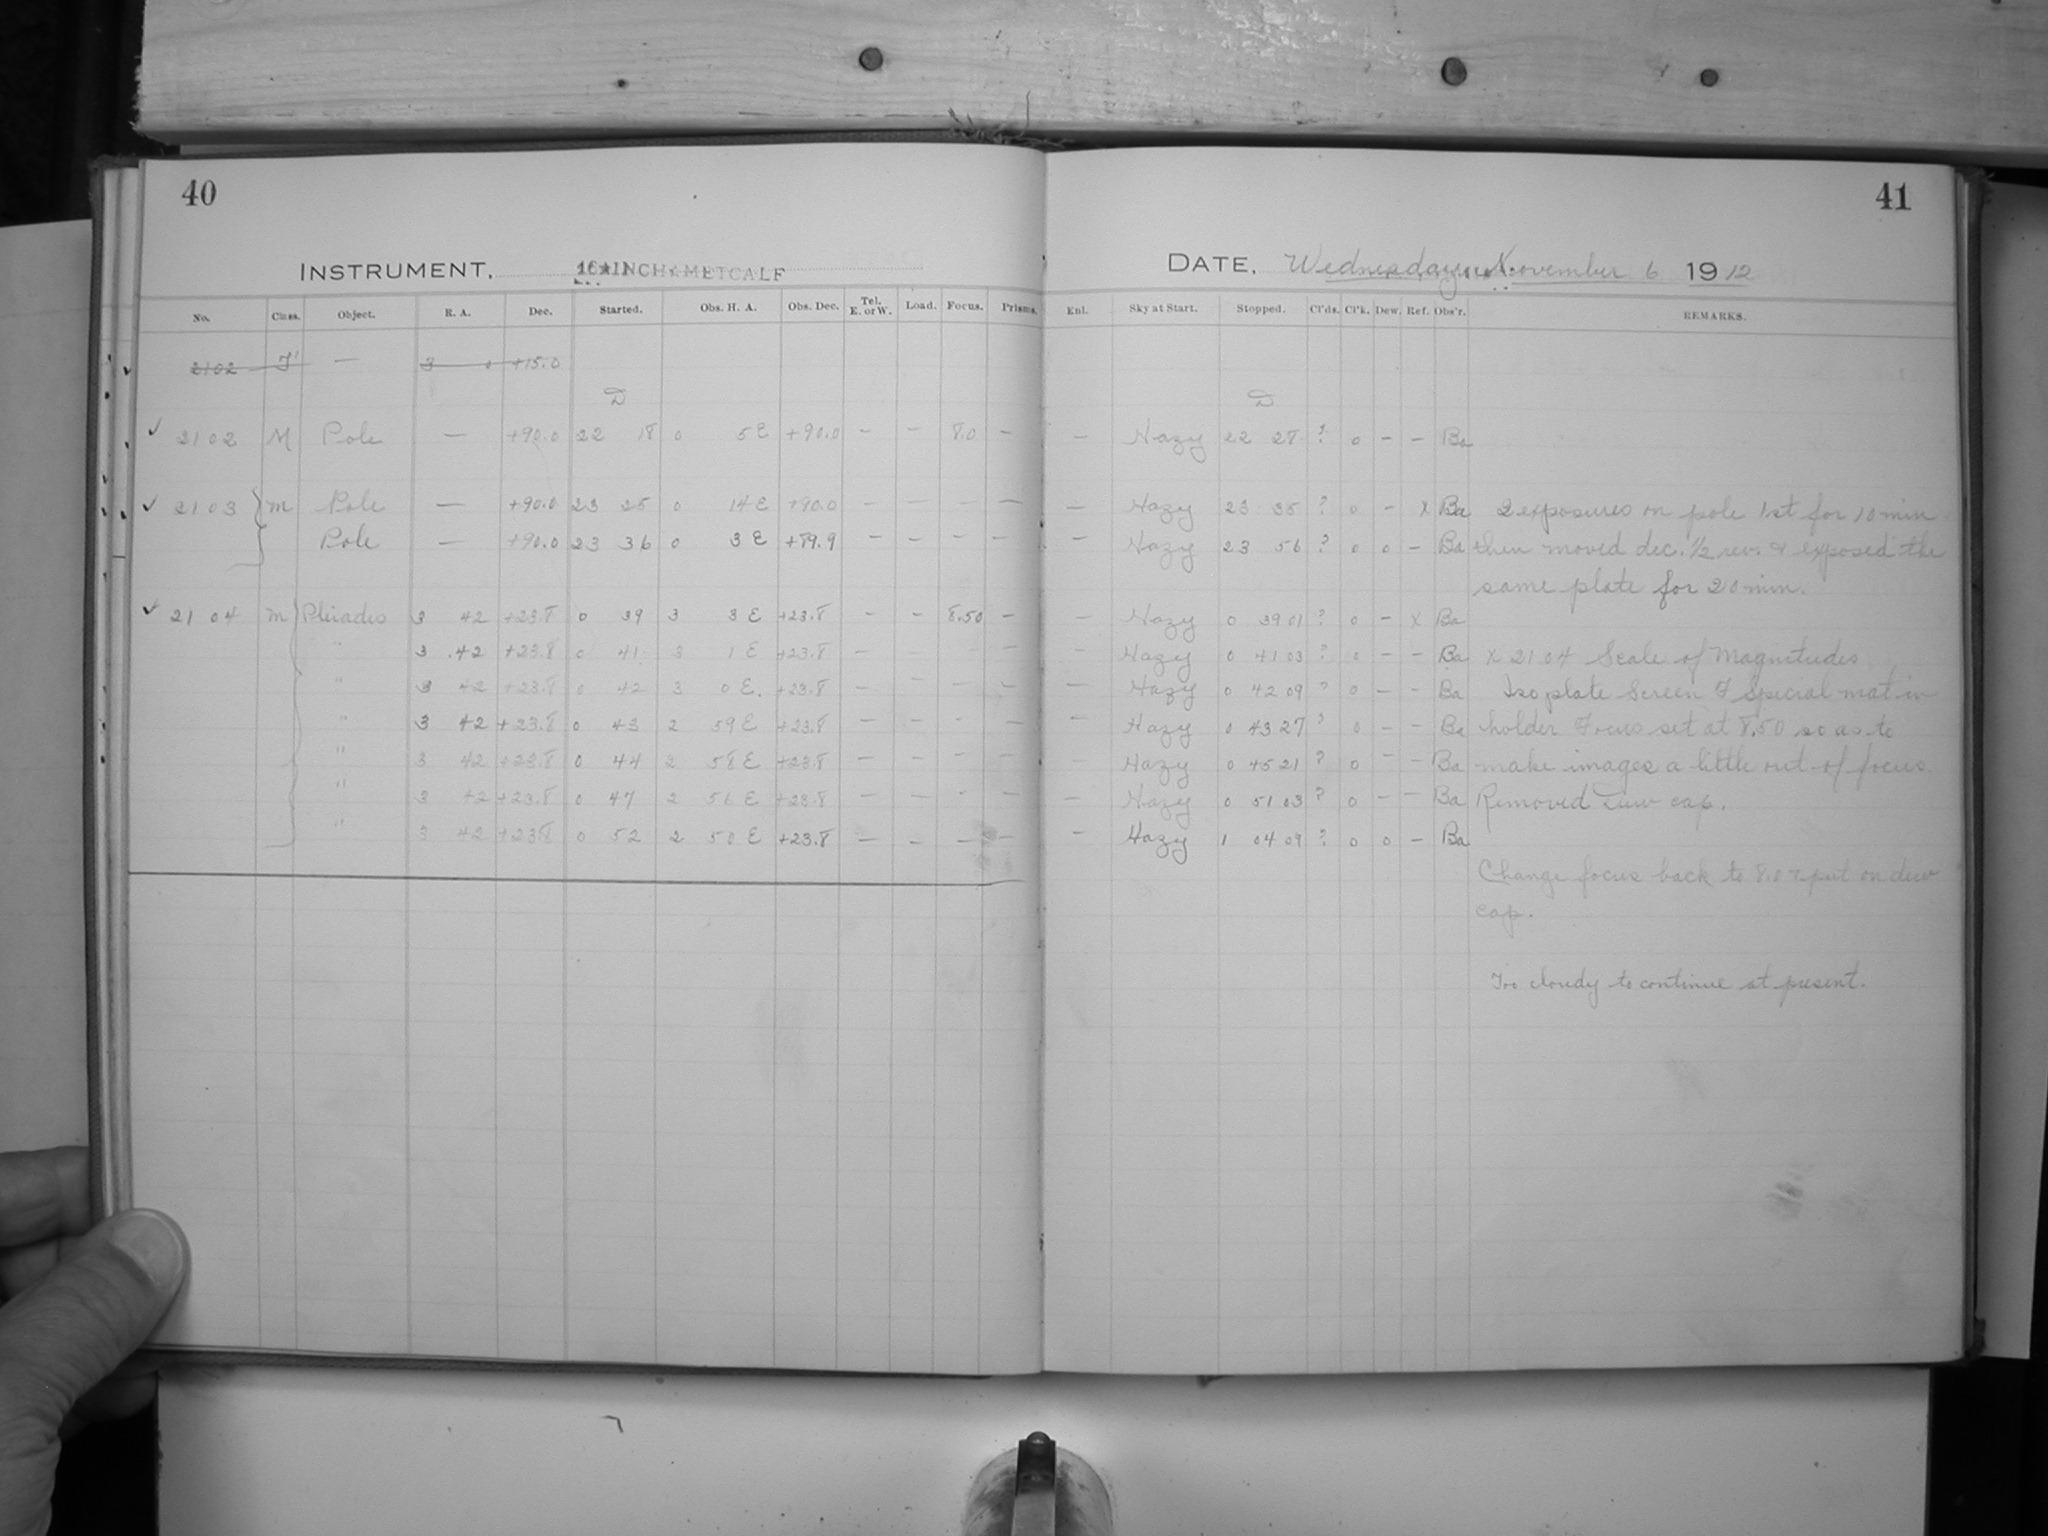 40
INSTRUMENT. 16 INCH METCALF
No. Class. Object. R. A. Dec. Started. Obs. H. A. Obs. Dec. Tel. E. or W. Load. Focus. Prisms.
2102 — 3 0 +15.0
D
✓ 2102 M Pole — +90.0 22 18 0 5 E +90.0 — — 8.0 —
✓ 2103 m Pole — +90.0 23 25 0 14 E +90.0 — — — —
Pole — +90.0 23 36 0 3 E +89.9 — — — —
✓ 2104 m Pleiades 3 42 +23.8 0 39 3 3 E +23.8 — — 8.50 —
" 3 42 +23.8 0 41 3 1 E +23.8 — — — —
" 3 42 +23.8 0 42 3 0 E. +23.8 — — — —
" 3 42 +23.8 0 43 2 59 E +23.8 — — — —
" 3 42 +23.8 0 44 2 58 E +23.8 — — — —
" 3 42 +23.8 0 47 2 56 E +23.8 — — — —
" 3 42 +23.8 0 52 2 50 E +23.8 — — — —
41
DATE. Wednesday November 6 1912
Enl. Sky at Start. Stopped. Cl'ds. Cl'k. Dew. Ref. Obs'r. REMARKS.
D
— Hazy 22 28 ? 0 — — Ba
— Hazy 23 35 ? 0 — X Ba 2 exposures on pole 1st for 10 min
— Hazy 23 56 ? 0 0 — Ba then moved dec. 1/2 rev. & exposed the
same plate for 20 min.
— Hazy 0 39 01 ? 0 — X Ba
— Hazy 0 41 03 ? 0 — — Ba X 2104 Scale of Magnitudes
— Hazy 0 42 09 ? 0 — — Ba Iso plate Screen & Special mat in
— Hazy 0 43 27 ? 0 — — Ba holder Focus set at 8.50 so as to
— Hazy 0 45 21 ? 0 — — Ba make images a little out of focus
— Hazy 0 51 03 ? 0 — — Ba Removed dew cap.
— Hazy 1 04 09 ? 0 0 — Ba
Change focus back to 8.0 & put on dew
cap.
Too cloudy to continue at present.